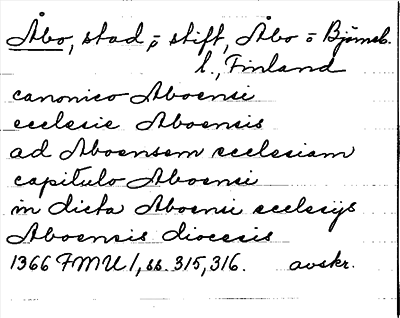 Åbo, stad o. stift, Åbo o Björneb.
l., Finland
canonico Aboensi
ecclesie Aboensis
ad Aboensem ecclesiam
capitulo Aboensi
in dicta Aboensi ecclesijs
Aboensis diocesis
1366 FMU 1, ss. 315, 316. avskr.